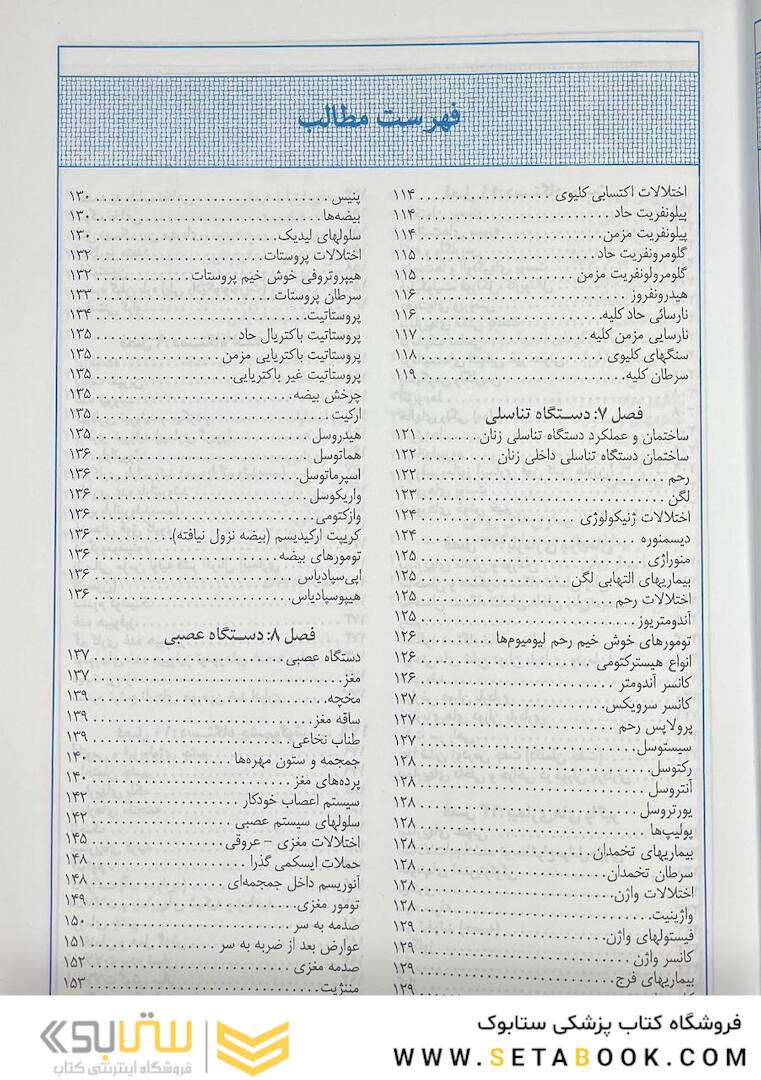 فهرست مطالب
اختلالات اکتسابی کلیوی ۱۱۴
پیلونفریت حاد ۱۱۴
پیلونفریت مزمن ۱۱۴
گلومرونفریت حاد ۱۱۵
گلومرولونفریت مزمن ۱۱۵
هیدرونفروز ۱۱۶
نارسائی حاد کلیه ۱۱۶
نارسایی مزمن کلیه ۱۱۷
سنگهای کلیوی ۱۱۸
سرطان کلیه ۱۱۹
فصل ۷: دستگاه تناسلی
ساختمان و عملکرد دستگاه تناسلی زنان ۱۲۱
ساختمان دستگاه تناسلی داخلی زنان ۱۲۲
رحم ۱۲۲
لگن ۱۲۳
اختلالات ژنیکولوژی ۱۲۴
دیسمنوره ۱۲۴
منوراژی ۱۲۵
بیماریهای التهابی لگن ۱۲۵
اختلالات رحم ۱۲۵
آندومتریوز ۱۲۵
تومورهای خوش خیم رحم لیومیوم‌ها ۱۲۶
انواع هیسترکتومی ۱۲۶
کانسر آندومتر ۱۲۶
کانسر سرویکس ۱۲۷
پرولاپس رحم ۱۲۷
سیستوسل ۱۲۷
رکتوسل ۱۲۸
آنتروسل ۱۲۸
یورتروسل ۱۲۸
پولیپ‌ها ۱۲۸
بیماریهای تخمدان ۱۲۸
سرطان تخمدان ۱۲۸
اختلالات واژن ۱۲۸
واژینیت ۱۲۸
فیستولهای واژن ۱۲۹
کانسر واژن ۱۲۹
بیماریهای فرج ۱۲۹
۱۲۹
پنیس ۱۳۰
بیضه‌ها ۱۳۰
سلولهای لیدیک ۱۳۰
اختلالات پروستات ۱۳۲
هیپروتروفی خوش خیم پروستات ۱۳۲
سرطان پروستات ۱۳۳
پروستاتیت ۱۳۴
پروستاتیت باکتریال حاد ۱۳۵
پروستاتیت باکتریایی مزمن ۱۳۵
پروستاتیت غیر باکتریایی ۱۳۵
چرخش بیضه ۱۳۵
ارکیت ۱۳۵
هیدروسل ۱۳۵
هماتوسل ۱۳۶
اسپرماتوسل ۱۳۶
واریکوسل ۱۳۶
وازکتومی ۱۳۶
کریپت ارکیدیسم (بیضه نزول نیافته) ۱۳۶
تومورهای بیضه ۱۳۶
اپی‌سپادیاس ۱۳۶
هیپوسپادیاس ۱۳۶
فصل ۸: دستگاه عصبی
دستگاه عصبی ۱۳۷
مغز ۱۳۷
مخچه ۱۳۹
ساقه مغز ۱۳۹
طناب نخاعی ۱۳۹
جمجمه و ستون مهره‌ها ۱۴۰
پرده‌های مغز ۱۴۰
سیستم اعصاب خودکار ۱۴۲
سلولهای سیستم عصبی ۱۴۲
اختلالات مغزی - عروقی ۱۴۵
حملات ایسکمی گذرا ۱۴۸
آنوریسم داخل جمجمه‌ای ۱۴۸
تومور مغزی ۱۴۹
صدمه به سر ۱۵۰
عوارض بعد از ضربه به سر ۱۵۱
صدمه مغزی ۱۵۲
مننژیت ۱۵۳
فروشگاه کتاب پزشکی ستابوک
WWW.SETABOOK.COM
ستابوک
فروشگاه اینترنتی کتاب